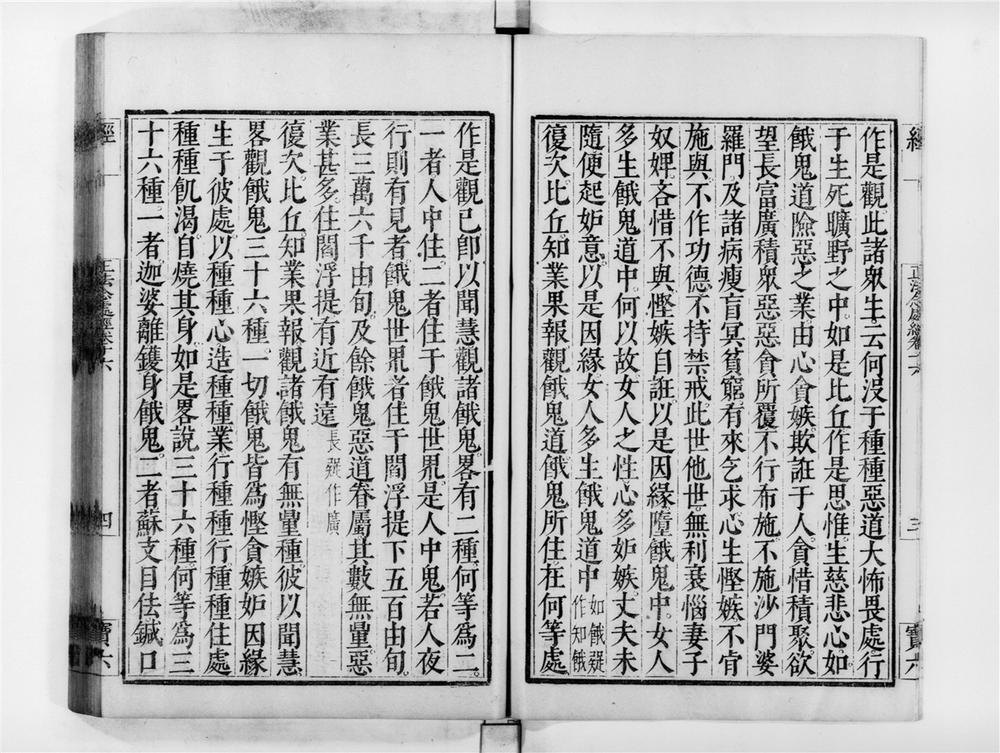 作是觀此諸眾生云何沒于種種惡道大怖畏處行
于生死曠野之中如是比丘作是思惟生慈悲心如
餓鬼道險惡之業由心貪嫉欺誑于人貪惜積聚欲
望長富廣積眾惡惡貪所覆不行布施不施沙門婆
羅門及諸病瘦盲冥貧窮有來乞求心生慳嫉不肯
施與不作功德不持禁戒此世他世無利衰惱妻子
奴婢吝惜不與慳嫉自誑以是因緣墮餓鬼中女人
多生餓鬼道中何以故女人之性心多妒嫉丈夫未
隨便起妒意以是因緣女人多生餓鬼道中如餓疑作知餓
復次比丘知業果報觀餓鬼道餓鬼所住在何等處
經
正法念處經卷十六
三
寶六
作是觀已卽以聞慧觀諸餓鬼畧有二種何等為二
一者人中住二者住于餓鬼世界是人中鬼若人夜
行則有見者餓鬼世界者住于閻浮提下五百由旬
長三萬六千由旬及餘餓鬼惡道眷屬其數無量惡
業甚多住閻浮提有近有遠長疑作廣
復次比丘知業果報觀諸餓鬼有無量種彼以聞慧
畧觀餓鬼三十六種一切餓鬼皆為慳貪嫉妒因緣
生于彼處以種種心造種種業行種種行種種住處
種種飢渴自燒其身如是畧說三十六種何等為三
十六種一者迦婆離鑊身餓鬼二者蘇支目佉鍼口
經
正法念處經卷十六
四
寶六